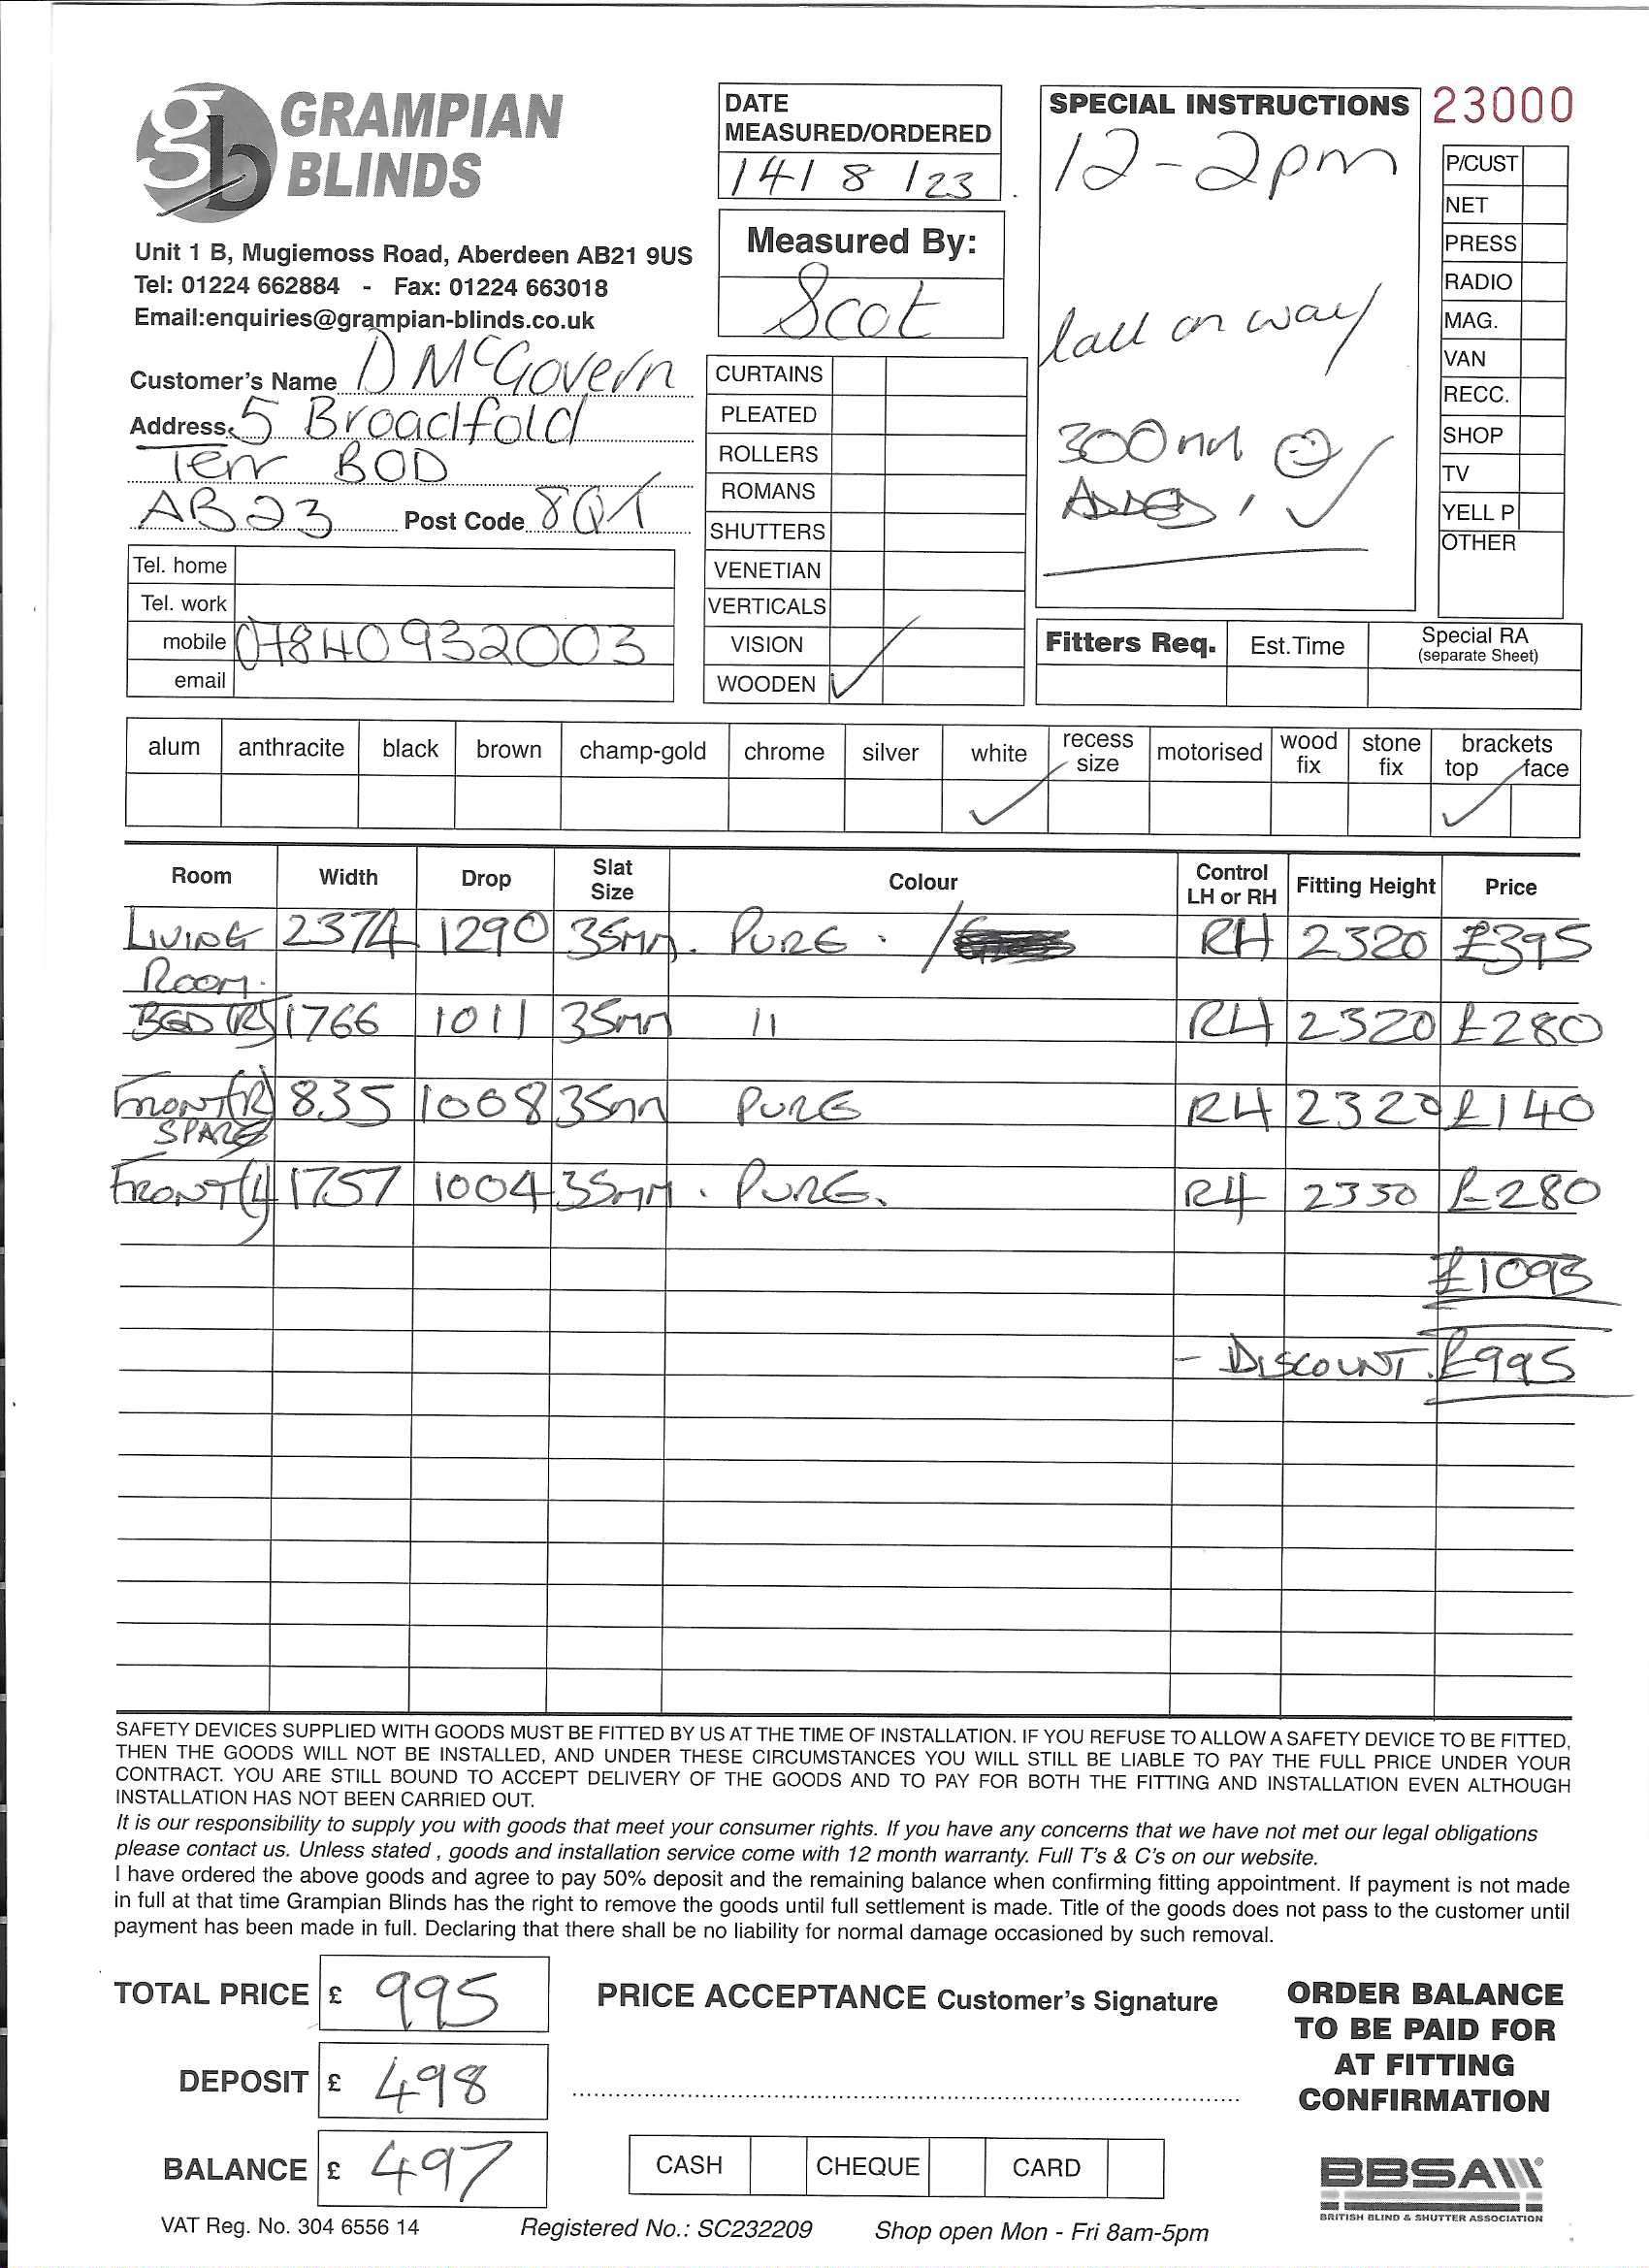 GRAMPIAN
BLINDS
Unit 1 B, Mugiemoss Road, Aberdeen AB21 9US
Tel: 01224 662884 - Fax: 01224 663018
Email:enquiries@grampian-blinds.co.uk
Customer's Name D McGovern
Address 5 Broadfold
Terr BOD
AB23 Post Code 8QT
Tel. home
Tel. work
mobile 07840932003
email
DATE
MEASURED/ORDERED
14/ 8 /23
Measured By:
Scot
CURTAINS
PLEATED
ROLLERS
ROMANS
SHUTTERS
VENETIAN
VERTICALS
VISION
WOODEN ✓
SPECIAL INSTRUCTIONS
12-2pm
Call on way
300
ADDED
23000
P/CUST
NET
PRESS
RADIO
MAG.
VAN
RECC.
SHOP
TV
YELL P
OTHER
Fitters Req. Est.Time Special RA
(separate Sheet)
alum anthracite black brown champ-gold chrome silver white recess size motorised wood fix stone fix brackets top face
✓ ✓
Room Width Drop Slat Size Colour Control LH or RH Fitting Height Price
LIVING 2374 1290 35mm. PURE. / RH 2320 £395
ROOM.
BED (R) 1766 1011 35mm 11 RH 2320 £280
FRONT (R) 835 1008 35mm PURE RH 2320 £140
SPARE
FRONT (L) 1757 1004 35mm. PURE. RH 2330 £280
£1095
- DISCOUNT. £995
SAFETY DEVICES SUPPLIED WITH GOODS MUST BE FITTED BY US AT THE TIME OF INSTALLATION. IF YOU REFUSE TO ALLOW A SAFETY DEVICE TO BE FITTED,
THEN THE GOODS WILL NOT BE INSTALLED, AND UNDER THESE CIRCUMSTANCES YOU WILL STILL BE LIABLE TO PAY THE FULL PRICE UNDER YOUR
CONTRACT. YOU ARE STILL BOUND TO ACCEPT DELIVERY OF THE GOODS AND TO PAY FOR BOTH THE FITTING AND INSTALLATION EVEN ALTHOUGH
INSTALLATION HAS NOT BEEN CARRIED OUT.
It is our responsibility to supply you with goods that meet your consumer rights. If you have any concerns that we have not met our legal obligations
please contact us. Unless stated , goods and installation service come with 12 month warranty. Full T's & C's on our website.
I have ordered the above goods and agree to pay 50% deposit and the remaining balance when confirming fitting appointment. If payment is not made
in full at that time Grampian Blinds has the right to remove the goods until full settlement is made. Title of the goods does not pass to the customer until
payment has been made in full. Declaring that there shall be no liability for normal damage occasioned by such removal.
TOTAL PRICE £ 995
DEPOSIT £ 498
BALANCE £ 497
PRICE ACCEPTANCE Customer's Signature
CASH CHEQUE CARD
ORDER BALANCE
TO BE PAID FOR
AT FITTING
CONFIRMATION
BBSA
BRITISH BLIND & SHUTTER ASSOCIATION
VAT Reg. No. 304 6556 14 Registered No.: SC232209 Shop open Mon - Fri 8am-5pm